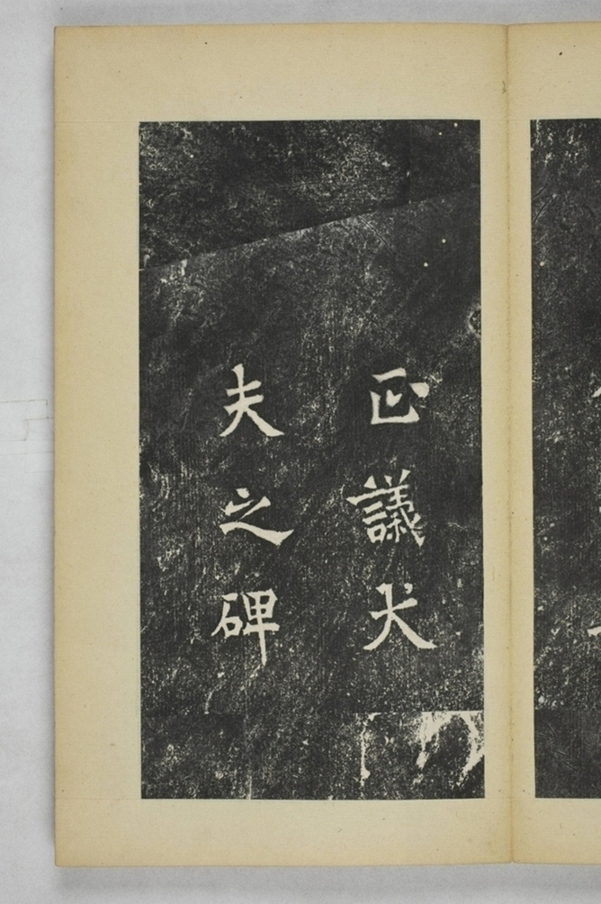 正議大
夫之碑